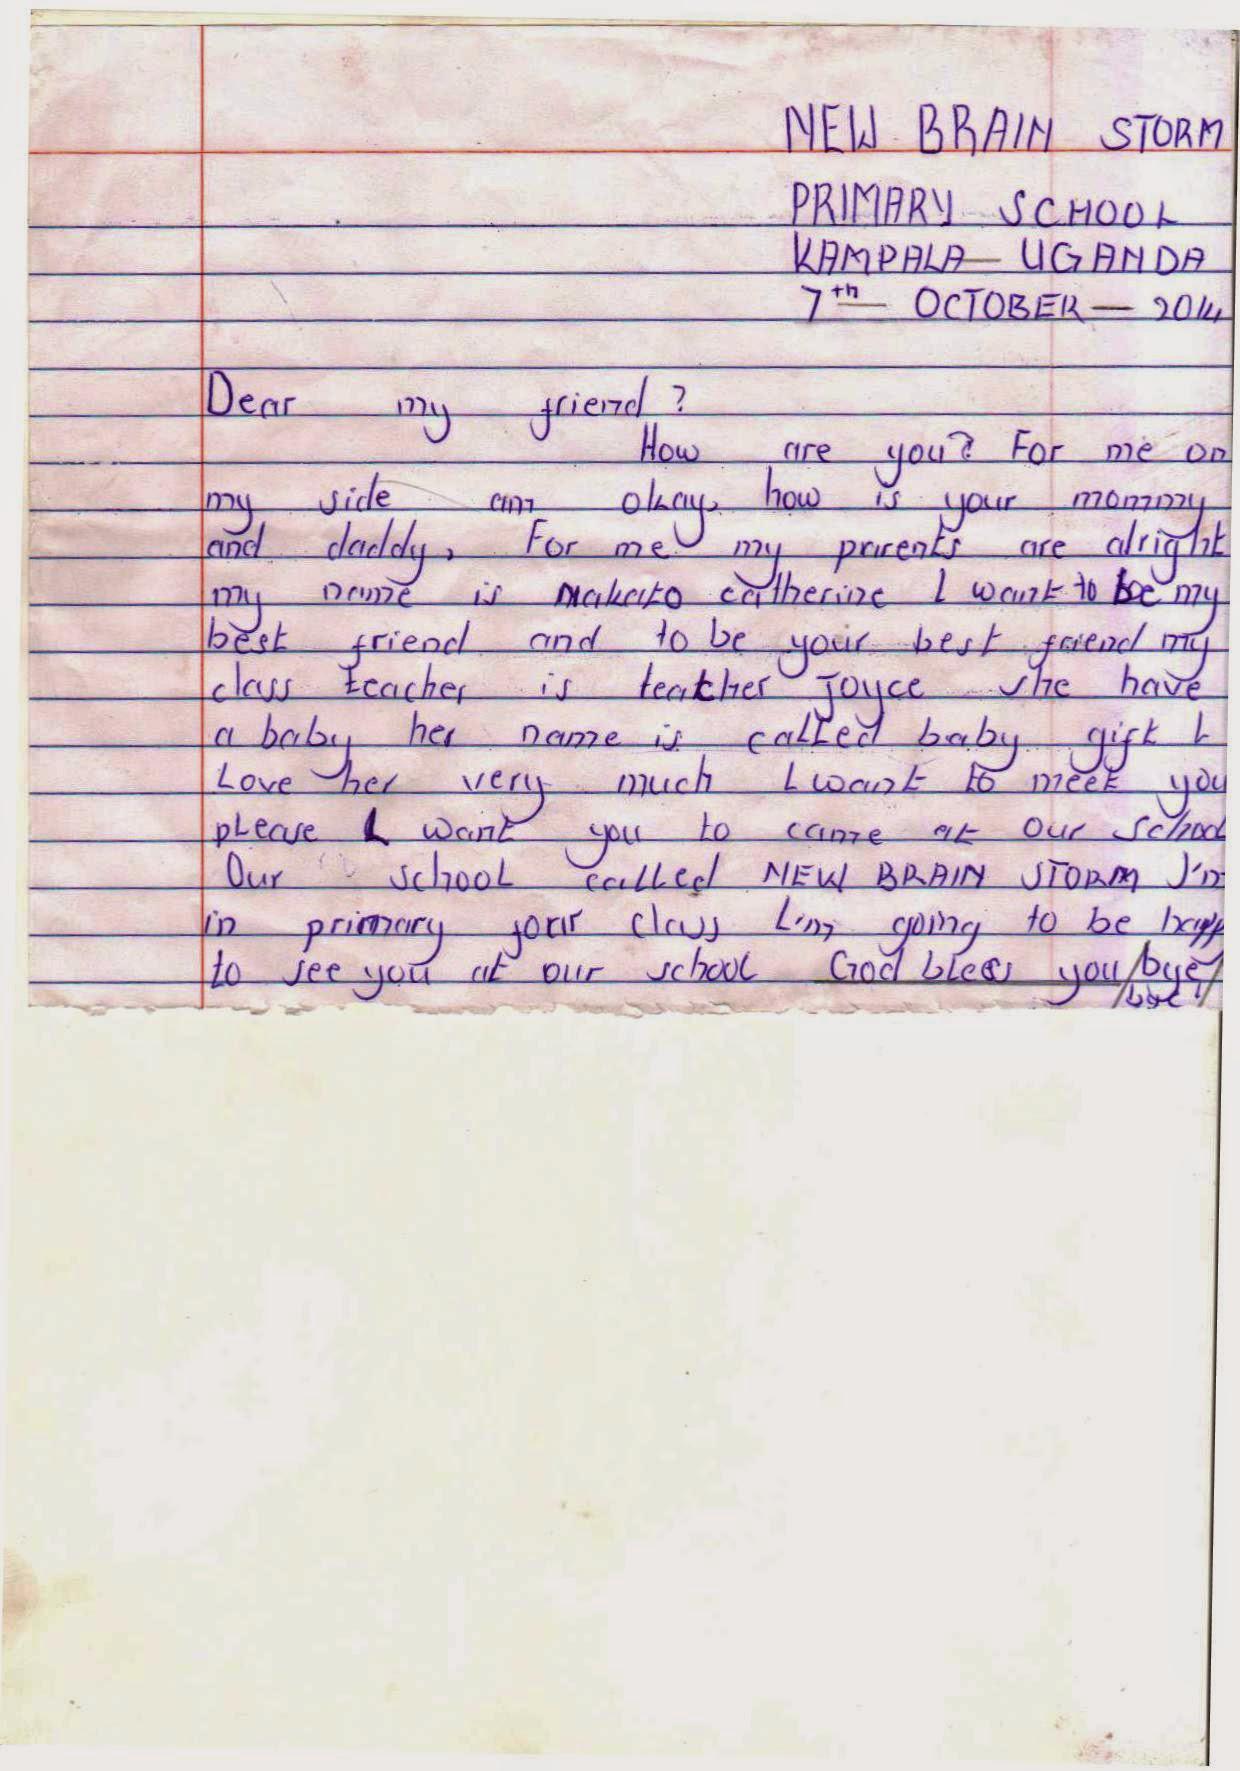 NEW BRAIN STORM
PRIMARY SCHOOL
KAMPALA — UGANDA
7th — OCTOBER — 2014
Dear my friend?
How are you? For me on
my side am okay, how is your mommy
and daddy, For me my parents are alright
my name is Makato catherine I want to be my
best friend and to be your best friend my
class teacher is teatcher joyce she have
a baby her name is called baby gift I
Love her very much I want to meet you
please I want you to came at our school
Our school called NEW BRAIN STORM I'm
in primary four class I'm going to be happy
to see you at our school God bless you / bye /
bye!